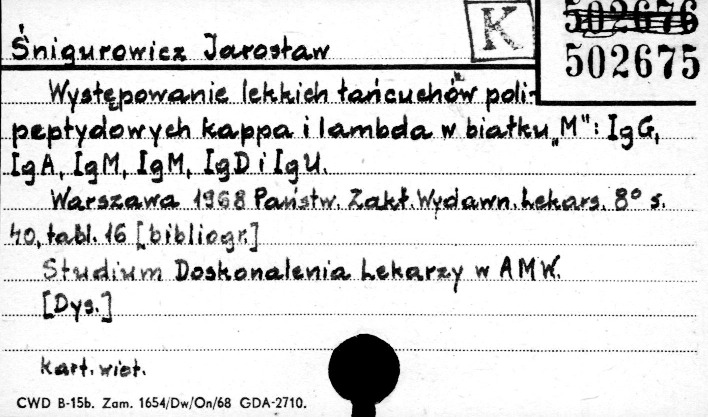 K
502676
Śnigurowicz Jarosław
502675
Występowanie lekkich łańcuchów poli-
peptydowych kappa i lambda w białku „M": IgG,
IgA, IgM, IgM, IgD i IgU.
Warszawa 1968 Państw. Zakł. Wydawn. Lekars. 8° s.
40, tabl. 16 [bibliogr.]
Studium Doskonalenia Lekarzy w AMW.
[Dys.]
kart. wiet.
CWD B-15b. Zam. 1654/Dw/On/68 GDA-2710.